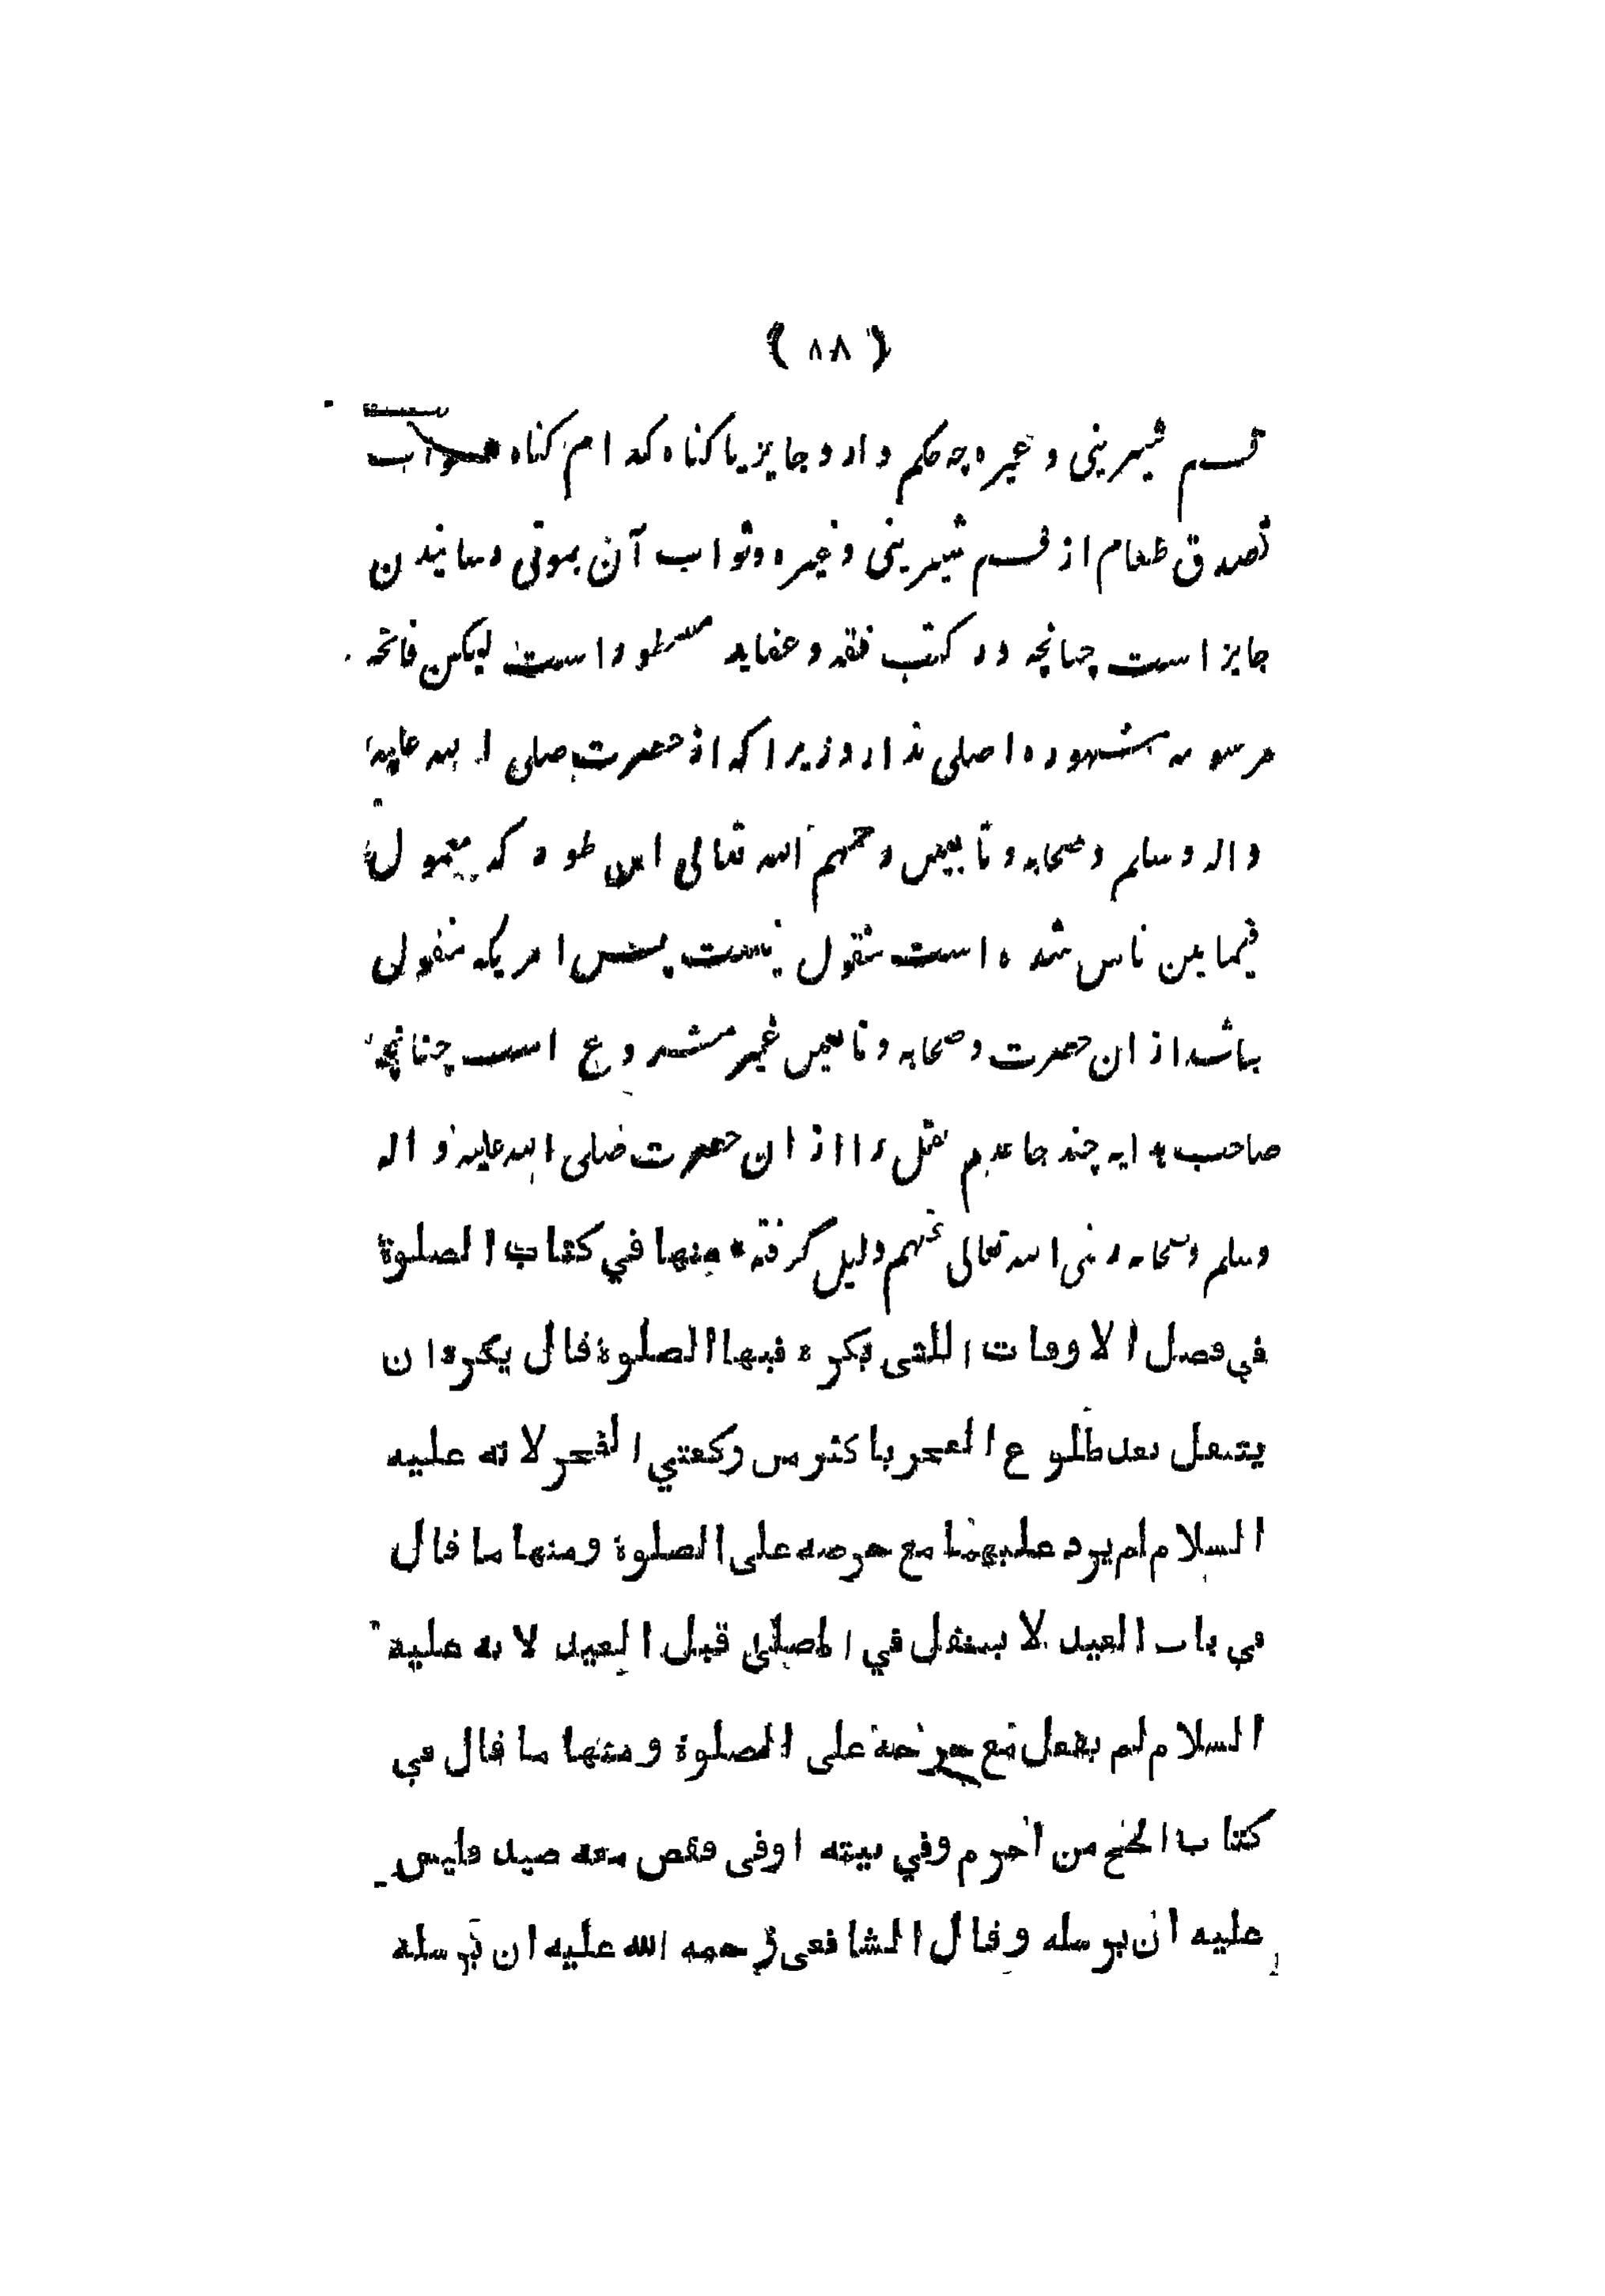 ( ۸۸ )
قسم شیرینی و غیره چه حکم دارد جایز یا کناه کدام کناه جواب
تصدق طعام از قسم شیرینی و غیره و ثواب آن بموتی رسانیدن
جایز است چنانچه در کتب فقه و عقاید مسطور است لیکن فاتحه
مرسومه مشهوره اصلی ندارد زیرا که از حضرت صلی الله علیه
و اله و سلم و صحابه و تابعین رحمهم الله تعالی این طور که معمول
فیما بین ناس شده است منقول نیست پس امریکه منقول
باشد از ان حضرت و صحابه و تابعین غیر مشروع است چنانچه
صاحب هدایه چند جا عدم نقل را از ان حضرت صلی الله علیه و اله
وسلم و صحابه رضی الله تعالی عنهم دلیل گرفته * منها في كتاب الصلوة
في فصل الاوقات اللتى تكره فيها الصلوة قال يكره ان
يتنفل بعد طلوع الفجر باكثر من ركعتي الفجر لانه عليه
السلام لم يزد عليهما مع حرصه على الصلوة ومنها ما قال
في باب العيد لا يتنفل في المصلى قبل العيد لانه عليه
السلام لم يفعل مع حرصه على الصلوة ومنها ما قال في
كتاب الحج من احرم وفي بيته اوفى قفص معه صيد فليس
عليه ان يرسله وقال الشافعى رحمه الله عليه ان يرسله